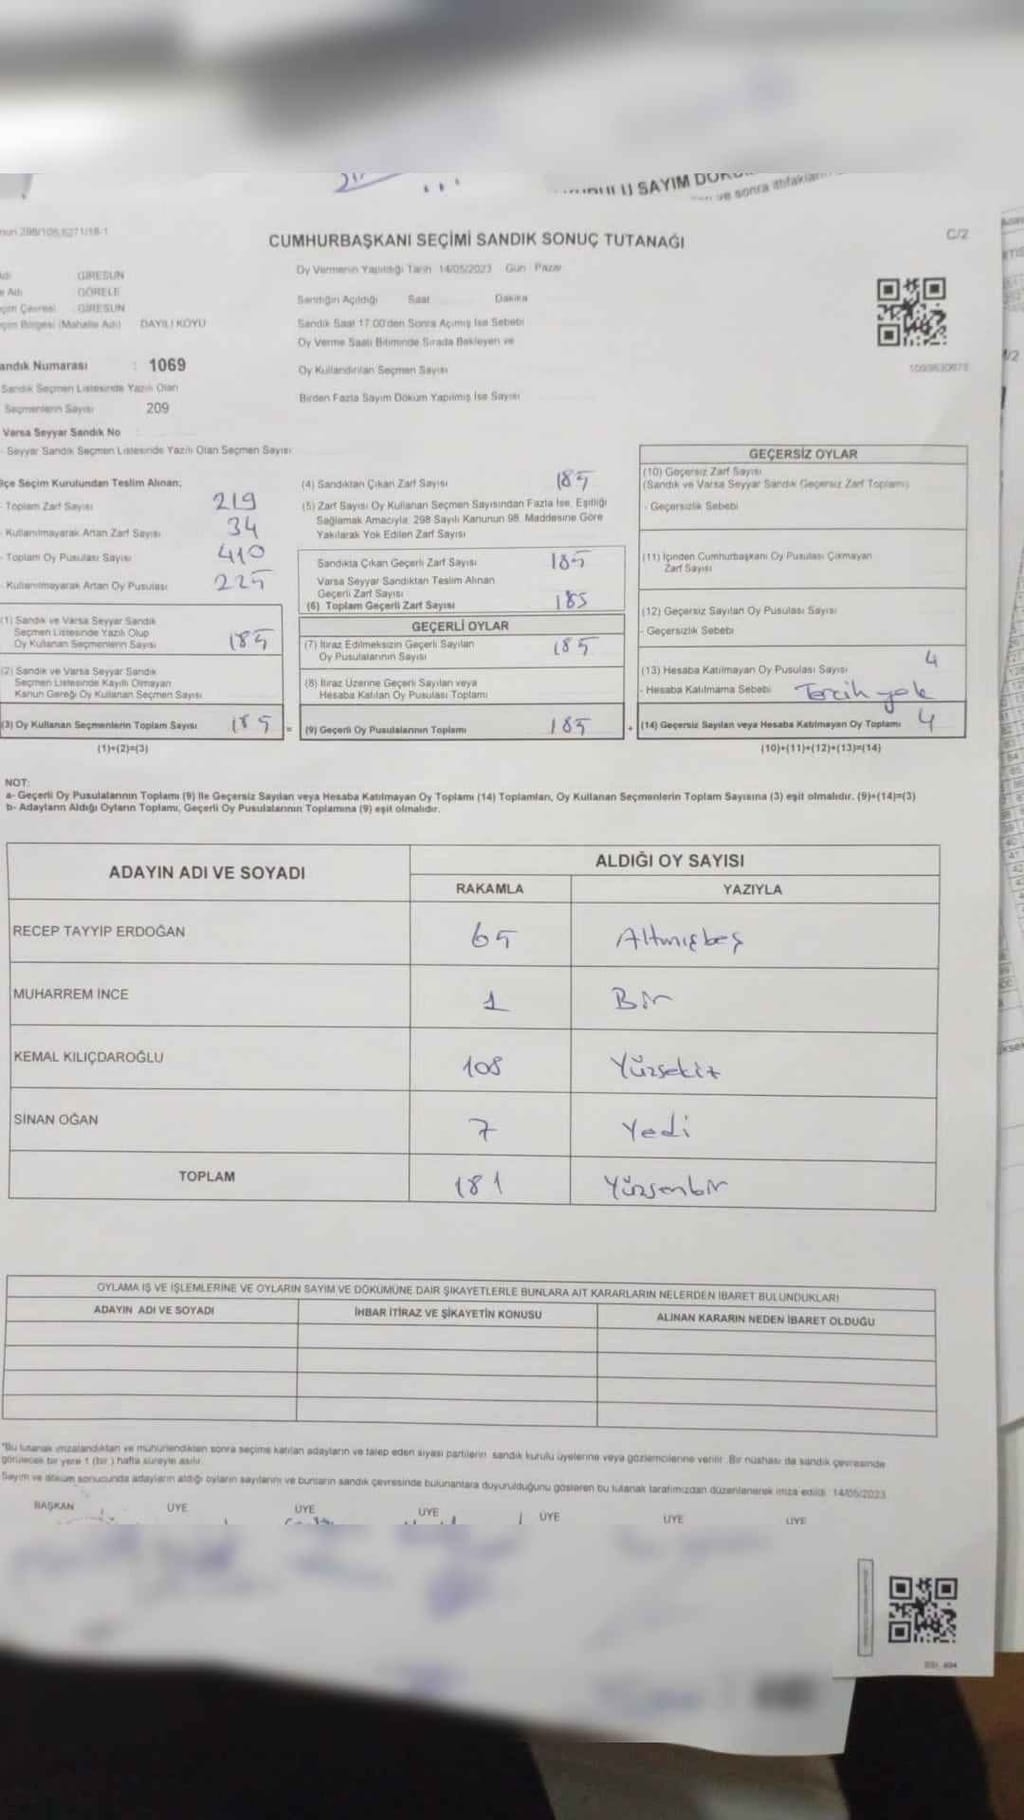 U SAYIM DÖK
ve sonra ittifakları
298/106,6271/18-1
CUMHURBAŞKANI SEÇİMİ SANDIK SONUÇ TUTANAĞI
C/2
GİRESUN
Oy Vermenin Yapıldığı Tarih 14/05/2023 Gün Pazar
GÖRELE
GİRESUN
Sandığın Açıldığı Saat Dakika
DAYILI KÖYÜ
Sandık Saat 17.00'den Sonra Açılmış İse Sebebi
Oy Verme Saati Bitiminde Sırada Bekleyen ve
Oy Kullandırılan Seçmen Sayısı
andık Numarası : 1069
Sandık Seçmen Listesinde Yazılı Olan
Seçmenlerin Sayısı 209
Birden Fazla Sayım Döküm Yapılmış İse Sayısı
Varsa Seyyar Sandık No
Seyyar Sandık Seçmen Listesinde Yazılı Olan Seçmen Sayısı
lçe Seçim Kurulundan Teslim Alınan;
Toplam Zarf Sayısı 219
Kullanılmayarak Artan Zarf Sayısı 34
Toplam Oy Pusulası Sayısı 410
Kullanılmayarak Artan Oy Pusulası 225
(1) Sandık ve Varsa Seyyar Sandık
Seçmen Listesinde Yazılı Olup
Oy Kullanan Seçmenlerin Sayısı 185
(2) Sandık ve Varsa Seyyar Sandık
Seçmen Listesinde Kayıtlı Olmayan
Kanun Gereği Oy Kullanan Seçmen Sayısı
(3) Oy Kullanan Seçmenlerin Toplam Sayısı 185 =
(1)+(2)=(3)
(4) Sandıktan Çıkan Zarf Sayısı 185
(5) Zarf Sayısı Oy Kullanan Seçmen Sayısından Fazla İse, Eşitliği
Sağlamak Amacıyla; 298 Sayılı Kanunun 98. Maddesine Göre
Yakılarak Yok Edilen Zarf Sayısı
Sandıkta Çıkan Geçerli Zarf Sayısı 185
Varsa Seyyar Sandıktan Teslim Alınan
Geçerli Zarf Sayısı
(6) Toplam Geçerli Zarf Sayısı 185
GEÇERLİ OYLAR
(7) İtiraz Edilmeksizin Geçerli Sayılan
Oy Pusulalarının Sayısı 185
(8) İtiraz Üzerine Geçerli Sayılan veya
Hesaba Katılan Oy Pusulası Toplamı
(9) Geçerli Oy Pusulalarının Toplamı 185 +
GEÇERSİZ OYLAR
(10) Geçersiz Zarf Sayısı
(Sandık ve Varsa Seyyar Sandık Geçersiz Zarf Toplamı)
- Geçersizlik Sebebi
(11) İçinden Cumhurbaşkanı Oy Pusulası Çıkmayan
Zarf Sayısı
(12) Geçersiz Sayılan Oy Pusulası Sayısı
- Geçersizlik Sebebi
(13) Hesaba Katılmayan Oy Pusulası Sayısı 4
- Hesaba Katılmama Sebebi Tercih yok
(14) Geçersiz Sayılan veya Hesaba Katılmayan Oy Toplamı 4
(10)+(11)+(12)+(13)=(14)
NOT:
a- Geçerli Oy Pusulalarının Toplamı (9) ile Geçersiz Sayılan veya Hesaba Katılmayan Oy Toplamı (14) Toplamları, Oy Kullanan Seçmenlerin Toplam Sayısına (3) eşit olmalıdır. (9)+(14)=(3)
b- Adayların Aldığı Oyların Toplamı, Geçerli Oy Pusulalarının Toplamına (9) eşit olmalıdır.
ADAYIN ADI VE SOYADI
ALDIĞI OY SAYISI
RAKAMLA YAZIYLA
RECEP TAYYİP ERDOĞAN 65 Altmışbeş
MUHARREM İNCE 1 Bir
KEMAL KILIÇDAROĞLU 108 Yüzsekiz
SİNAN OĞAN 7 Yedi
TOPLAM 181 Yüzsenbir
OYLAMA İŞ VE İŞLEMLERİNE VE OYLARIN SAYIM VE DÖKÜMÜNE DAİR ŞİKAYETLERLE BUNLARA AİT KARARLARIN NELERDEN İBARET BULUNDUKLARI
ADAYIN ADI VE SOYADI İHBAR İTİRAZ VE ŞİKAYETİN KONUSU ALINAN KARARIN NEDEN İBARET OLDUĞU
*Bu tutanak imzalandıktan ve mühürlendikten sonra seçime katılan adayların ve talep eden siyasi partilerin sandık kurulu üyelerine veya gözlemcilerine verilir. Bir nüshası da sandık çevresinde
görülecek bir yere 1 (bir) hafta süreyle asılır.
Sayım ve döküm sonucunda adayların aldığı oyların sayılarını ve bunların sandık çevresinde bulunanlara duyurulduğunu gösteren bu tutanak tarafımızdan düzenlenerek imza edildi. 14/05/2023
BAŞKAN ÜYE ÜYE ÜYE ÜYE ÜYE ÜYE